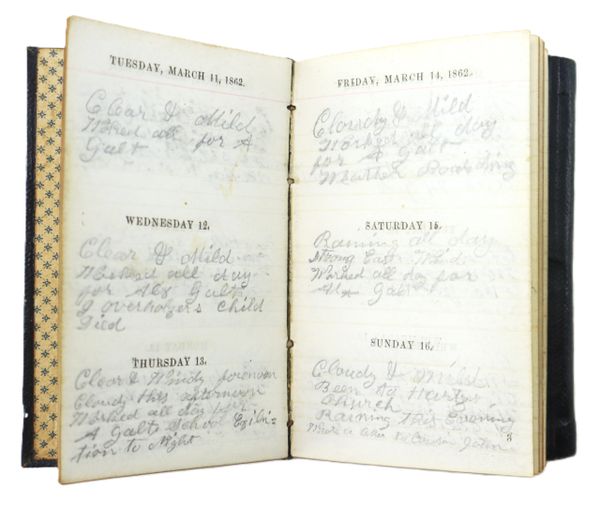 TUESDAY, MARCH 11, 1862.
Clear & Mild
Worked all for A
Galt
WEDNESDAY 12.
Clear & Mild
Worked all day
for Alx Galt
J overholzers child
Died
THURSDAY 13.
Clear & Windy forenoon
Cloudy this afternoon
Worked all day for
A Galts School Exibi=
tion to Night
FRIDAY, MARCH 14, 1862.
Cloudy & Mild
Worked all day
for A Galt
Weather
SATURDAY 15.
Raining all day
strong East Wind
Worked all day for
Alx Galt
SUNDAY 16.
Cloudy & Mild
Been to
Church
Raining This Evening
to Cousin John